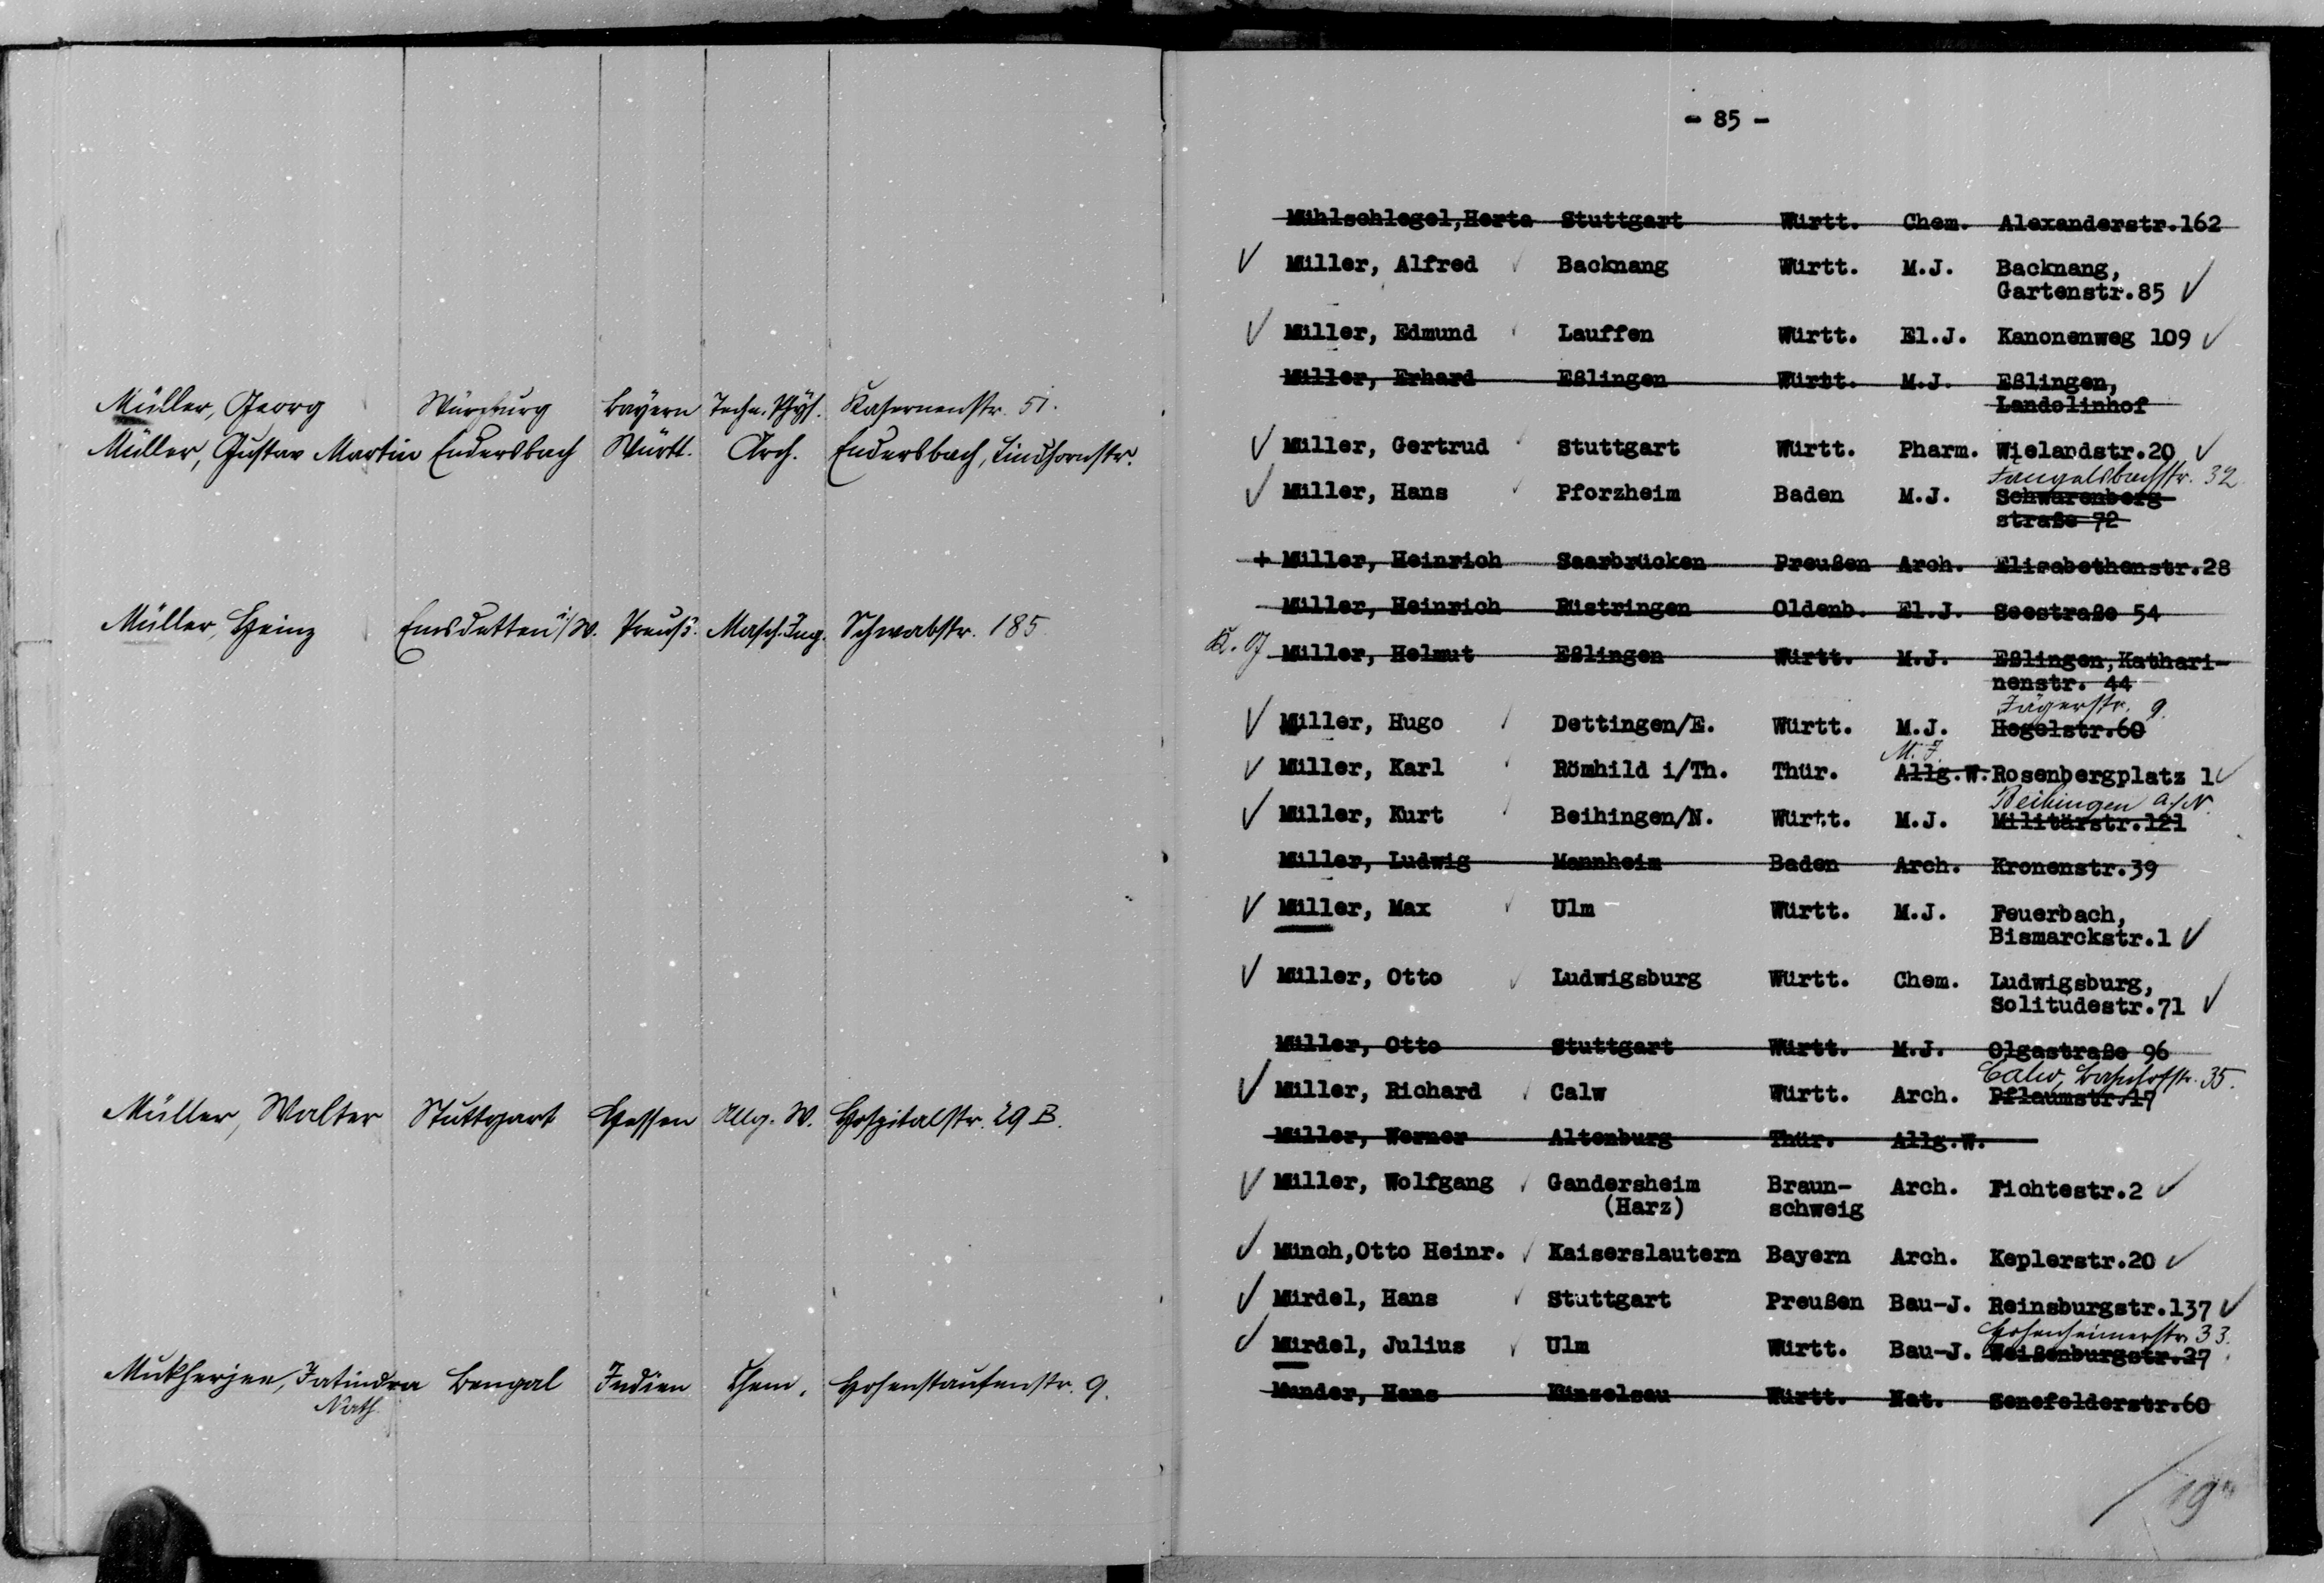 Müller, Georg Würzburg Bayern Techn. Phys. Kasernenstr. 51.
Müller, Gustav Martin Endersbach Württ. Arch. Endersbach, Lindhornstr.
Müller, Heinz Emsdetten i/W. Preuß. Masch. Ing. Schwabstr. 185
Müller, Walter Stuttgart Hessen Allg. W. Hospitalstr. 29 B.
Mukherjee, Jatindra Bengal Indien Chem. Hohenstaufenstr. 9.
Nath
- 85 -
Mühlschlegel,Herta Stuttgart Württ. Chem. Alexanderstr.162
Müller, Alfred Backnang Württ. M.J. Backnang,
Gartenstr.85
Müller, Edmund Lauffen Württ. El.J. Kanonenweg 109
Müller, Erhard Eßlingen Württ. M.J. Eßlingen,
Landolinhof
Müller, Gertrud Stuttgart Württ. Pharm. Wielandstr.20
Fangelsbachstr. 32
Müller, Hans Pforzheim Baden M.J. Schwarenberg-
straße 72
+ Müller, Heinrich Saarbrücken Preußen Arch. Elisabethenstr.28
Müller, Heinrich Rüstringen Oldenb. El.J. Seestraße 54
Müller, Helmut Eßlingen Württ. M.J. Eßlingen,Kathari-
nenstr. 44
Jägerstr. 9.
Müller, Hugo Dettingen/E. Württ. M.J. Hegelstr.60
M.J.
Müller, Karl Römhild i/Th. Thür. Allg.W. Rosenbergplatz 1
Beihingen a/N
Müller, Kurt Beihingen/N. Württ. M.J. Militärstr.121
Müller, Ludwig Mannheim Baden Arch. Kronenstr.39
Müller, Max Ulm Württ. M.J. Feuerbach,
Bismarckstr.1
Müller, Otto Ludwigsburg Württ. Chem. Ludwigsburg,
Solitudestr.71
Müller, Otto Stuttgart Württ. M.J. Olgastraße 96
Calw, Bahnhofstr. 35.
Müller, Richard Calw Württ. Arch. Pflaumstr.17
Müller, Werner Altenburg Thür. Allg.W.
Müller, Wolfgang Gandersheim Braun- Arch. Fichtestr.2
(Harz) schweig
Münch,Otto Heinr. Kaiserslautern Bayern Arch. Keplerstr.20
Mürdel, Hans Stuttgart Preußen Bau-J. Reinsburgstr.137
Hohenheimerstr. 33.
Mürdel, Julius Ulm Württ. Bau-J. Weißenburgstr.27
Munder, Hans Künzelsau Württ. Nat. Senefelderstr.60